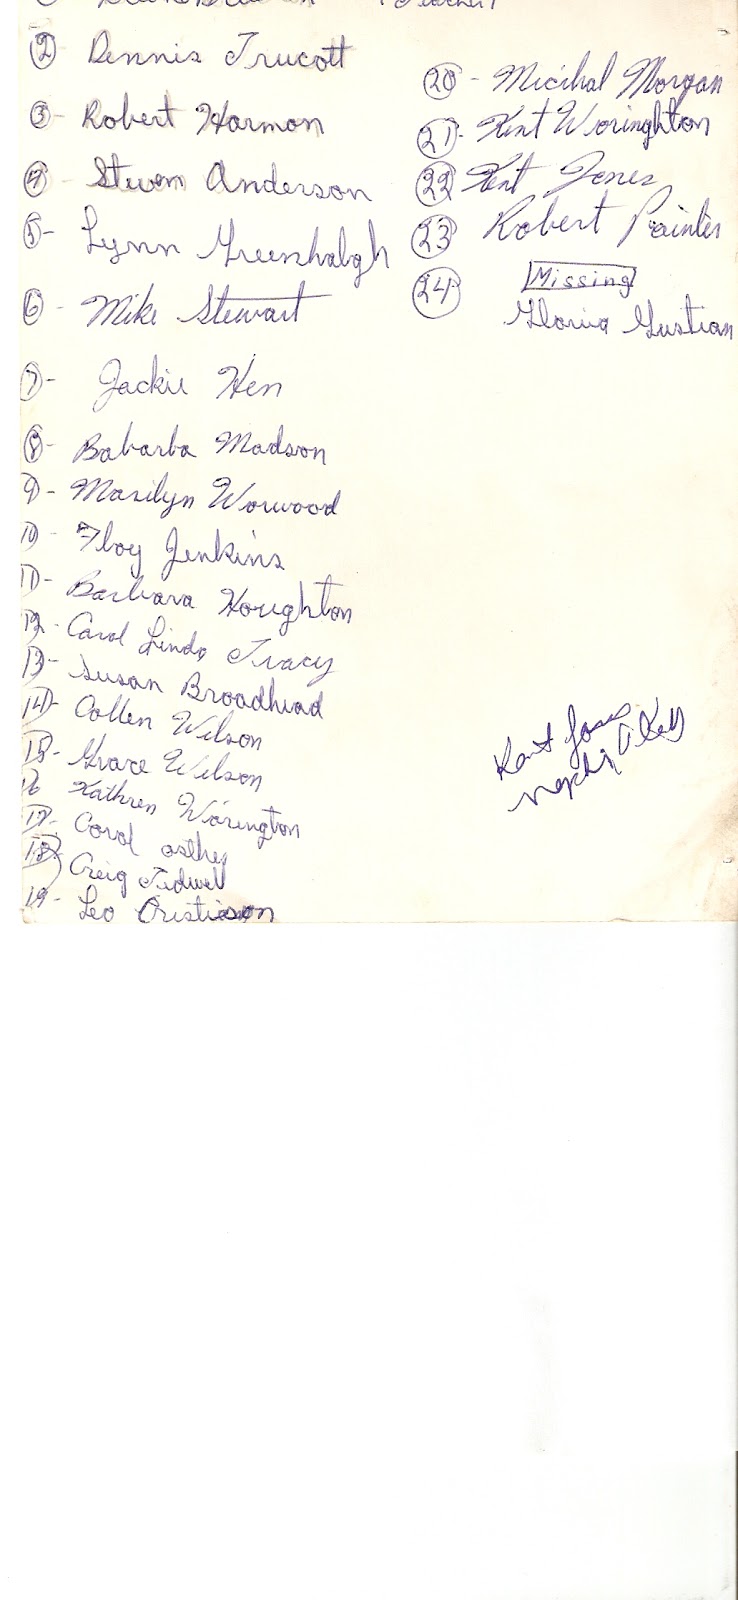 (Teacher)
② Dennis Trucott
③- Robert Harmon
④- Steven Anderson
⑤- Lynn Greenhalgh
⑥- Mike Stewart
⑦- Jackie Hen
⑧- Babarba Madson
⑨- Marilyn Worwood
⑩- Floy Jenkins
11- Barbara Houghton
12- Carol Linda Tracy
13- Susan Broadhead
14- Collen Wilson
15- Grace Wilson
16 Kathren Warington
17- Carol
18 Creig Tidwell
19- Leo Cristiason
⑳- Micihal Morgan
21- Kent Woringhton
22 Kent Jones
23 Robert Painter
24 Missing
Gloria Gustian
Kent Jones